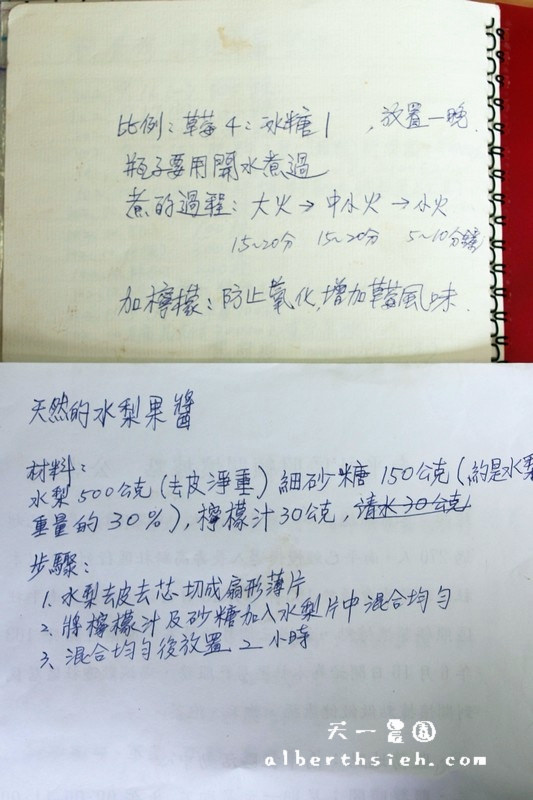 比例：草莓4：冰糖1，放置一晚.
瓶子要用開水煮過
煮的過程：大火→中小火→小火
15~20分 15~20分 5~10分鐘
加檸檬：防止氧化,增加草莓風味.
天然的水梨果醬
材料：
水梨500公克(去皮淨重)細砂糖150公克(約是水梨
重量的30%),檸檬汁30公克,清水30公克
步驟：
1.水梨去皮去芯切成扇形薄片
2.將檸檬汁及砂糖加入水梨片中混合均勻
3、混合均勻後放置2小時
天一農園
alberthsieh.com